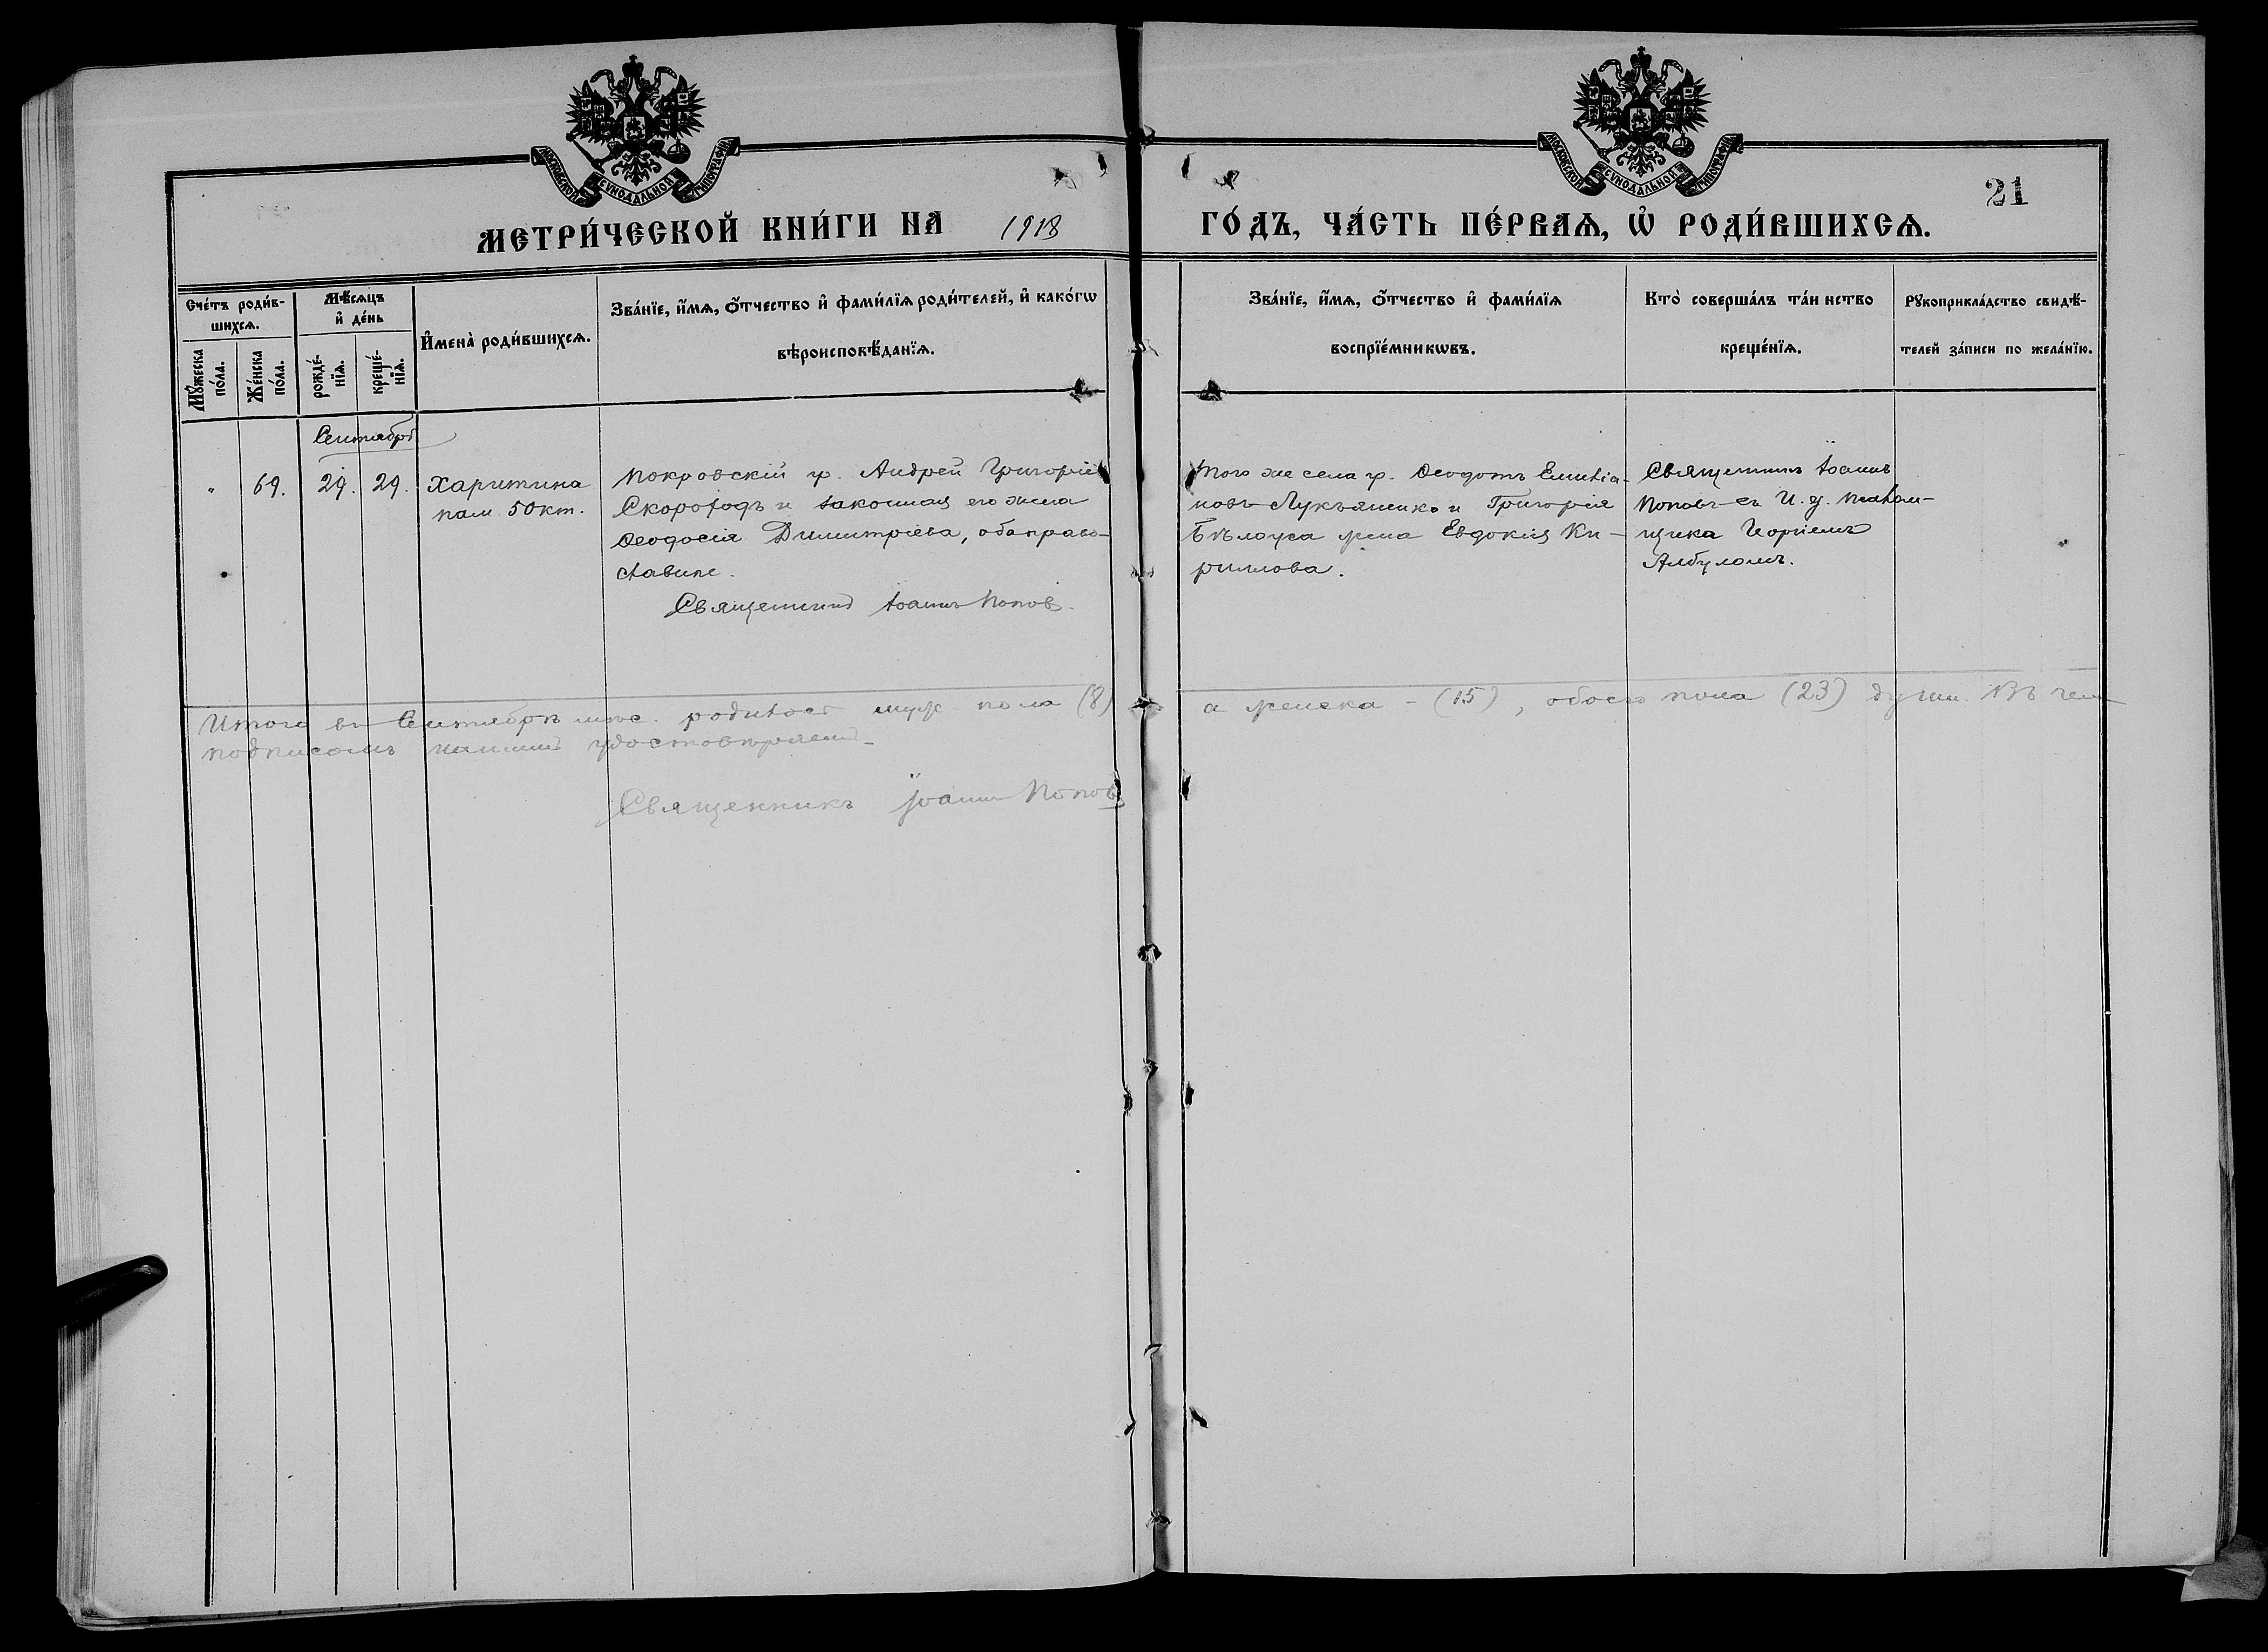 МОСКОВСКОЙ СѴНОДАЛЬНОЙ ТИПОГРАФІИ
МОСКОВСКОЙ СѴНОДАЛЬНОЙ ТИПОГРАФІИ
21
МЕТРИ́ЧЕСКОЙ КНИ́ГИ НА 1918 ГО́ДЪ, ЧА́СТЬ ПЕ́РВАѦ, Ѡ҆ РОДИ́ВШИХСѦ.
Сче́тъ роди́в-
шихсѧ.
Мꙋ́жеска по́ла.
Же́нска по́ла.
Мѣ́сѧцъ
и҆ де́нь
рожде́-
нїѧ.
креще́-
нїѧ.
И҆мена̀ роди́вшихсѧ.
Зва́нїе, и҆́мѧ, ѻ҆́тчество и҆ фами́лїѧ роди́телей, и҆ како́гѡ
вѣроисповѣ́данїѧ.
Зва́нїе, и҆́мѧ, ѻ҆́тчество и҆ фами́лїѧ
воспрїе́мникѡвъ.
Кто̀ соверша́лъ та́инство
креще́нїѧ.
Рꙋкоприкла́дство свидѣ́-
телей за́писи по жела́нїю.
Сентябрь
" 69. 29. 29. Харитина
пам. 5 окт.
Покровскій гр. Андрей Григоріев
Скороходъ и законная его жена
Ѳеодосія Димитріева, оба право-
славные.
Священникъ Іоаннъ Попов.
Того же села гр. Ѳеодотъ Емилiа-
новъ Лукьяненко и Григорія
Бѣлоуса жена Евдокія Ки-
риллова.
Священникъ Іоаннъ
Поповъ съ И. д. псалом-
щика Георгіемъ
Албуломъ.
Итого въ Сентябрѣ мѣс. родилось муж. пола (8) а женска - (15), обоего пола (23) души. Въ чем
подписомъ нашимъ удостовѣряемъ
Священникъ Іоаннъ Попов